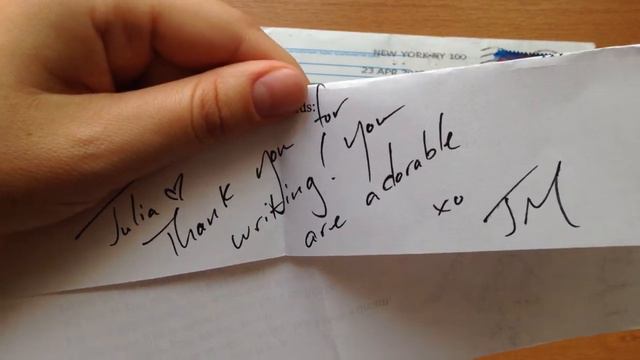 NEW YORK NY 100
23 APR
ds:
Julia ♡
Thank you for
writing! You
are adorable
xo JM